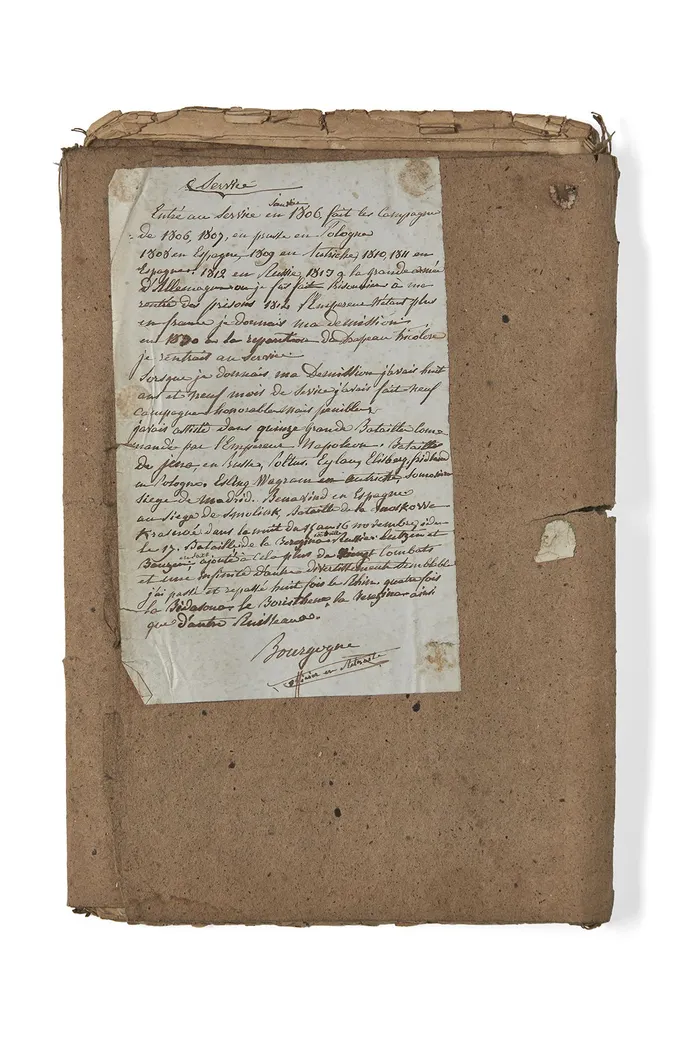 Service
Janvier
Entré au Service en 1806, fait les Campagne
de 1806, 1807, en prusse en Pologne
1808 en Espagne, 1809 en Autriche, 1810, 1811 en
Espagne. 1812 en Russie, 1813 a la grande armée
d'Allemagne ou je fus fait Prisonnier a ma
rentré des prisons 1812 l'Empereur n'étant plus
en france je donnais ma demission
en 1830 a la reparution du Drapeau tricolore
je rentrais au Service.
Lorsque je donnais ma Demission j'avais huit
ans et neuf mois de Service j'avais fait neuf
Campagne honorable mais penible
j'avais assisté dans quinze grande Bataille Com-
mandé par l'Empereur Napoleon. Bataille
de jena, en Prusse, Poltus. Eylau, Elisberg, fridland
en Pologne. Esling Wagram en Autriche, Somosiera
Siege de Madrid. Benavind en Espagne
au Siege de Smolensk Bataille de la Moskowa
Krasnoé dans la nuit du 15 au 16 novembre
le 17. Bataille de la Berezina en Russie Lutzen et
Bautzen en Saxe, ajouté a cela plus de vingt Combats
et une infinité d'autre divertissement semblable
j'ai passé et repassé huit fois le Rhin, quatre fois
la Bidasoa, le Boristhene, la Berezina ainsi
que d'autre Ruisseaux.
Bourgogne
officier en Retraite